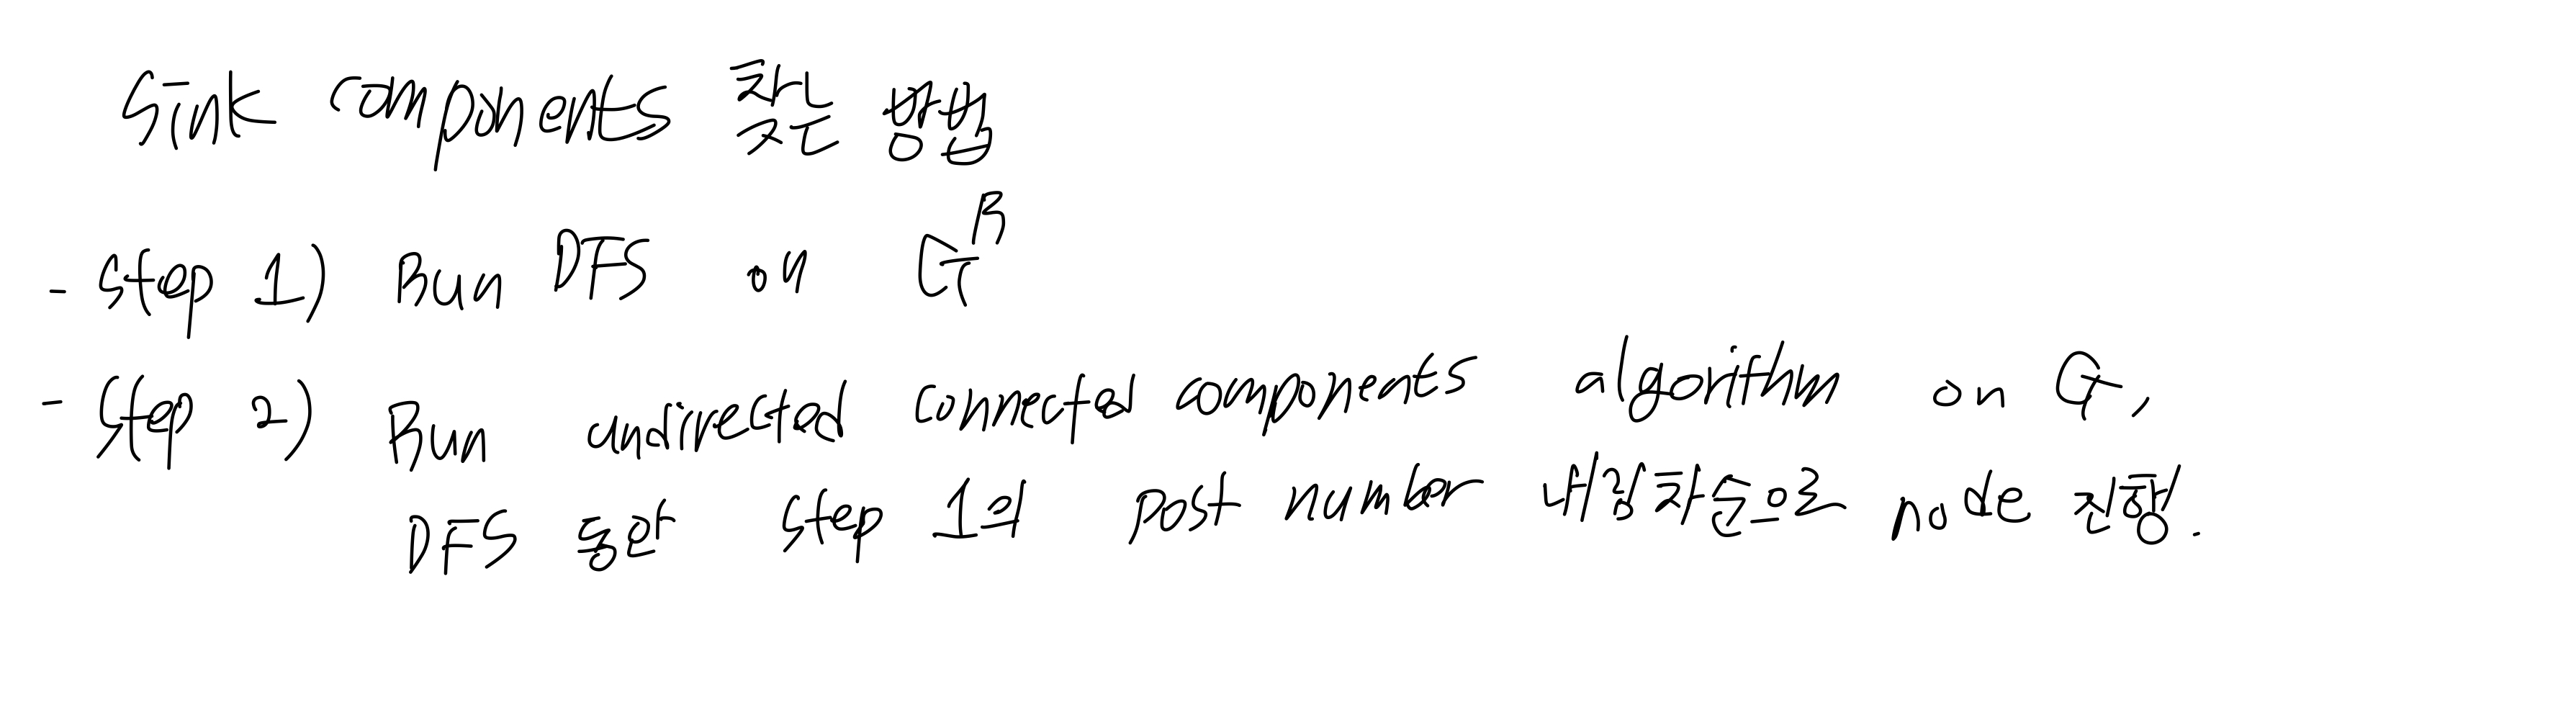 Sink components 찾는 방법
- Step 1) Run DFS on G^R
- Step 2) Run undirected connected components algorithm on G,
DFS 동안 step 1의 post number 내림차순으로 node 진행.